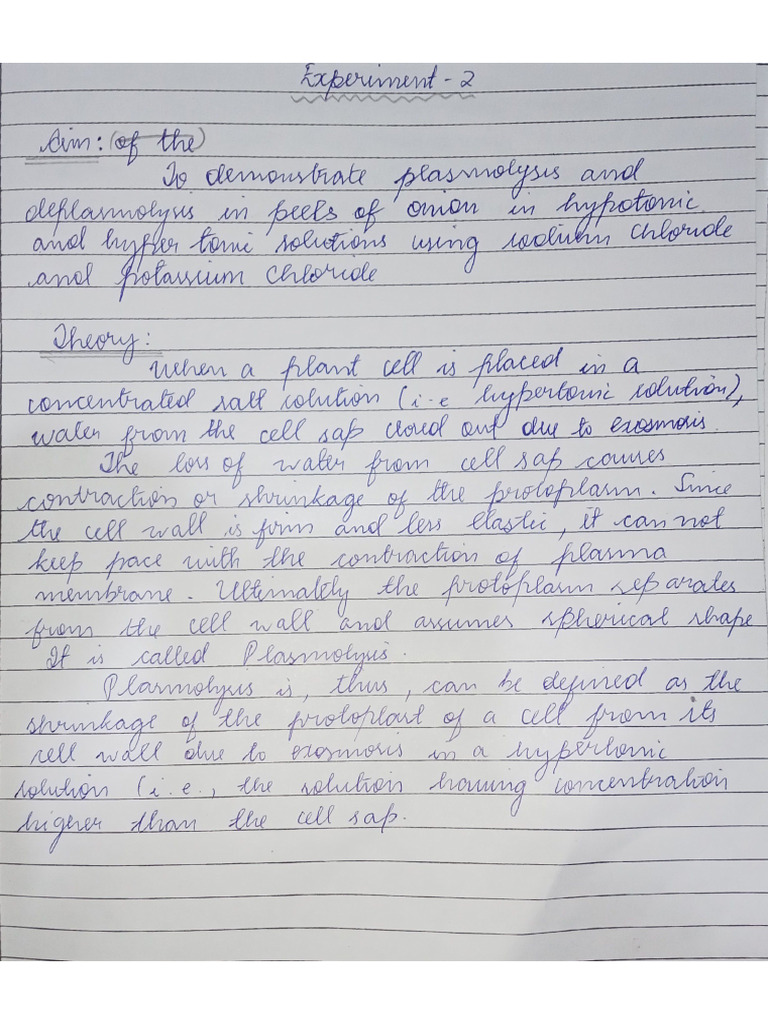 Experiment - 2
Aim: (of the)
To demonstrate plasmolysis and
deplasmolysis in peels of onion in hypotonic
and hyper tonic solutions using sodium chloride
and potassium chloride
Theory:
When a plant cell is placed in a
concentrated salt solution (i.e hypertonic solution),
water from the cell sap out due to exosmosis.
The loss of water from cell sap causes
contraction or shrinkage of the protoplasm. Since
the cell wall is firm and less elastic, it can not
keep pace with the contraction of plasma
membrane. Ultimately the protoplasm separates
from the cell wall and assumes spherical shape
It is called Plasmolysis.
Plasmolysis is, thus, can be defined as the
shrinkage of the protoplast of a cell from its
cell wall due to exosmosis in a hypertonic
solution (i.e., the solution having concentration
higher than the cell sap.